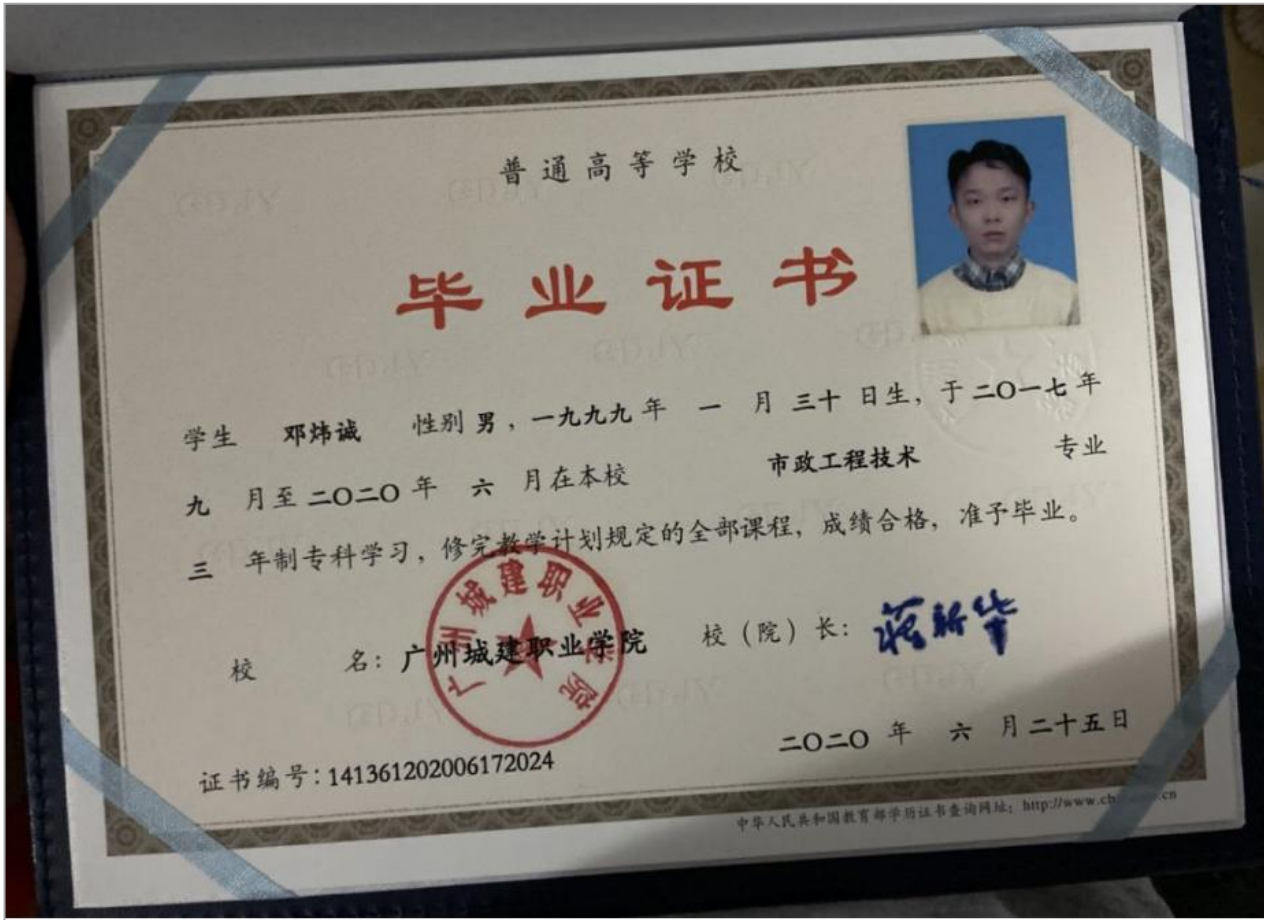 普通高等学校
毕业证书
学生 邓炜诚 性别 男，一九九九 年 一 月 三十 日生，于 二〇一七 年
九 月至 二〇二〇 年 六 月在本校 市政工程技术 专业
三 年制专科学习，修完教学计划规定的全部课程，成绩合格，准予毕业。
校 名：广州城建职业学院 校（院）长：蒋新华
广州城建职业学院
二〇二〇 年 六 月二十五日
证书编号：141361202006172024
中华人民共和国教育部学历证书查询网址：http://www.ch .cn